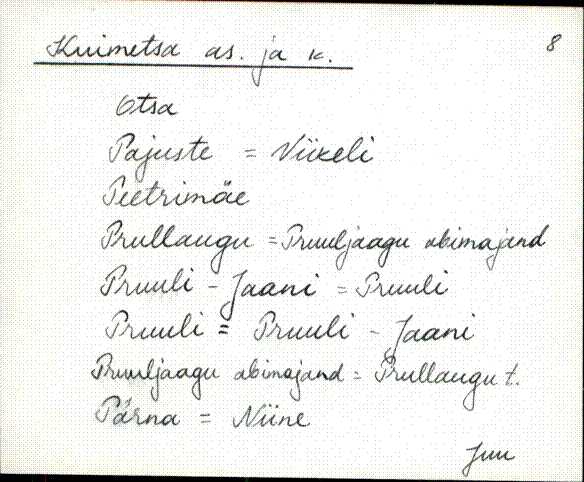 Kuimetsa as. ja k.
8
Otsa
Pajuste = Viikeli
Peetrimäe
Prullaugu = Pruuljaagu abimajand
Pruuli - Jaani = Pruuli
Pruuli = Pruuli - Jaani
Pruuljaagu abimajand = Prullaugu t.
Pärna = Niine
Juu